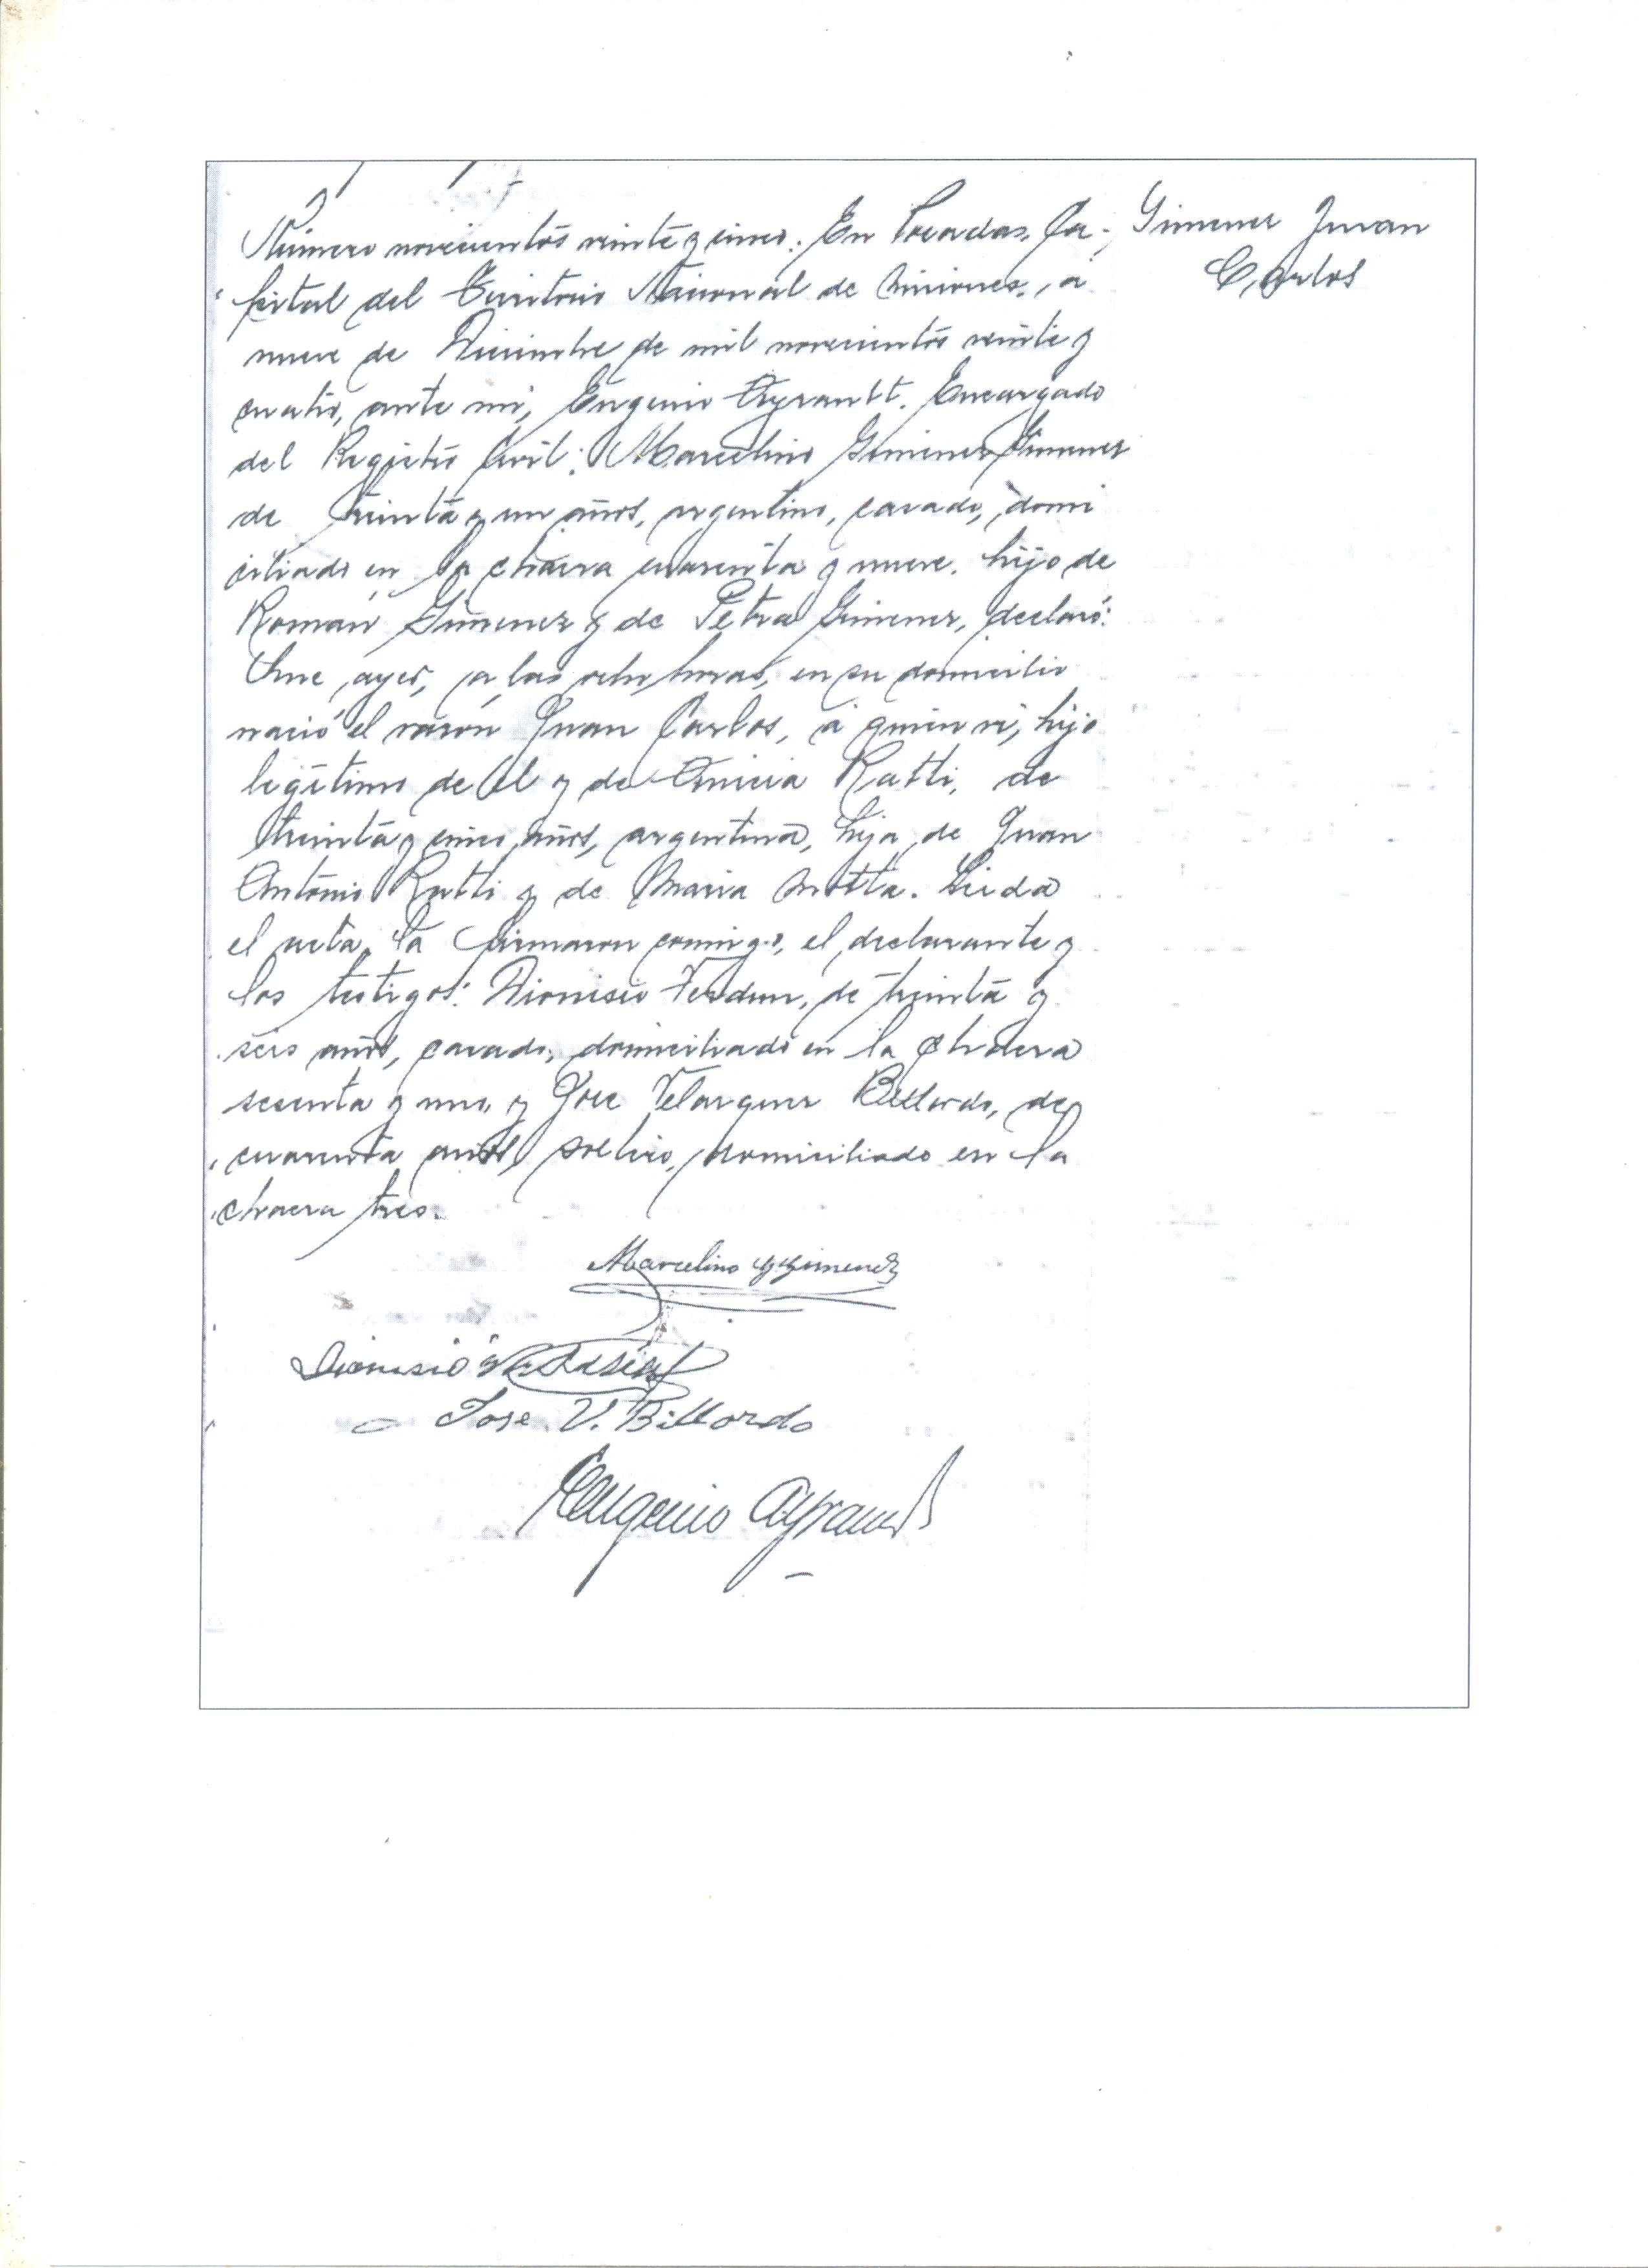 Número novecientos veinte y cinco: En Posadas, Ca-
pital del Territorio Nacional de Misiones, á
nueve de Diciembre de mil novecientos veinte y
cuatro, ante mi, Eugenio Ayrault. Encargado
del Registro Civil: Marcelino Gimenez Gimenez
de treinta y un años, argentino, casado, domi
ciliado en la chacra cuarenta y nueve. hijo de
Román Gimenez y de Petra Gimenez, declaró:
Que ayer, a las ocho horas, en su domicilio
nació el varón Juan Carlos, á quien vi, hijo
legítimo de él y de Anicia Ratti, de
treinta y cinco años, argentina, hija de Juan
Antonio Ratti y de Maria Motta. Leida
el acta, la firmaron conmigo, el declarante y
los testigos: Dionisio Verdun, de treinta y
seis años, casado, domiciliado en la chacra
sesenta y uno, y José Velazquez Billordo, de
cuarenta años, soltero, domiciliado en la
chacra tres.
Gimenez Juan
Carlos
Marcelino G Gimenez
Dionisio
Jose V. Billordo
Eugenio Ayrault